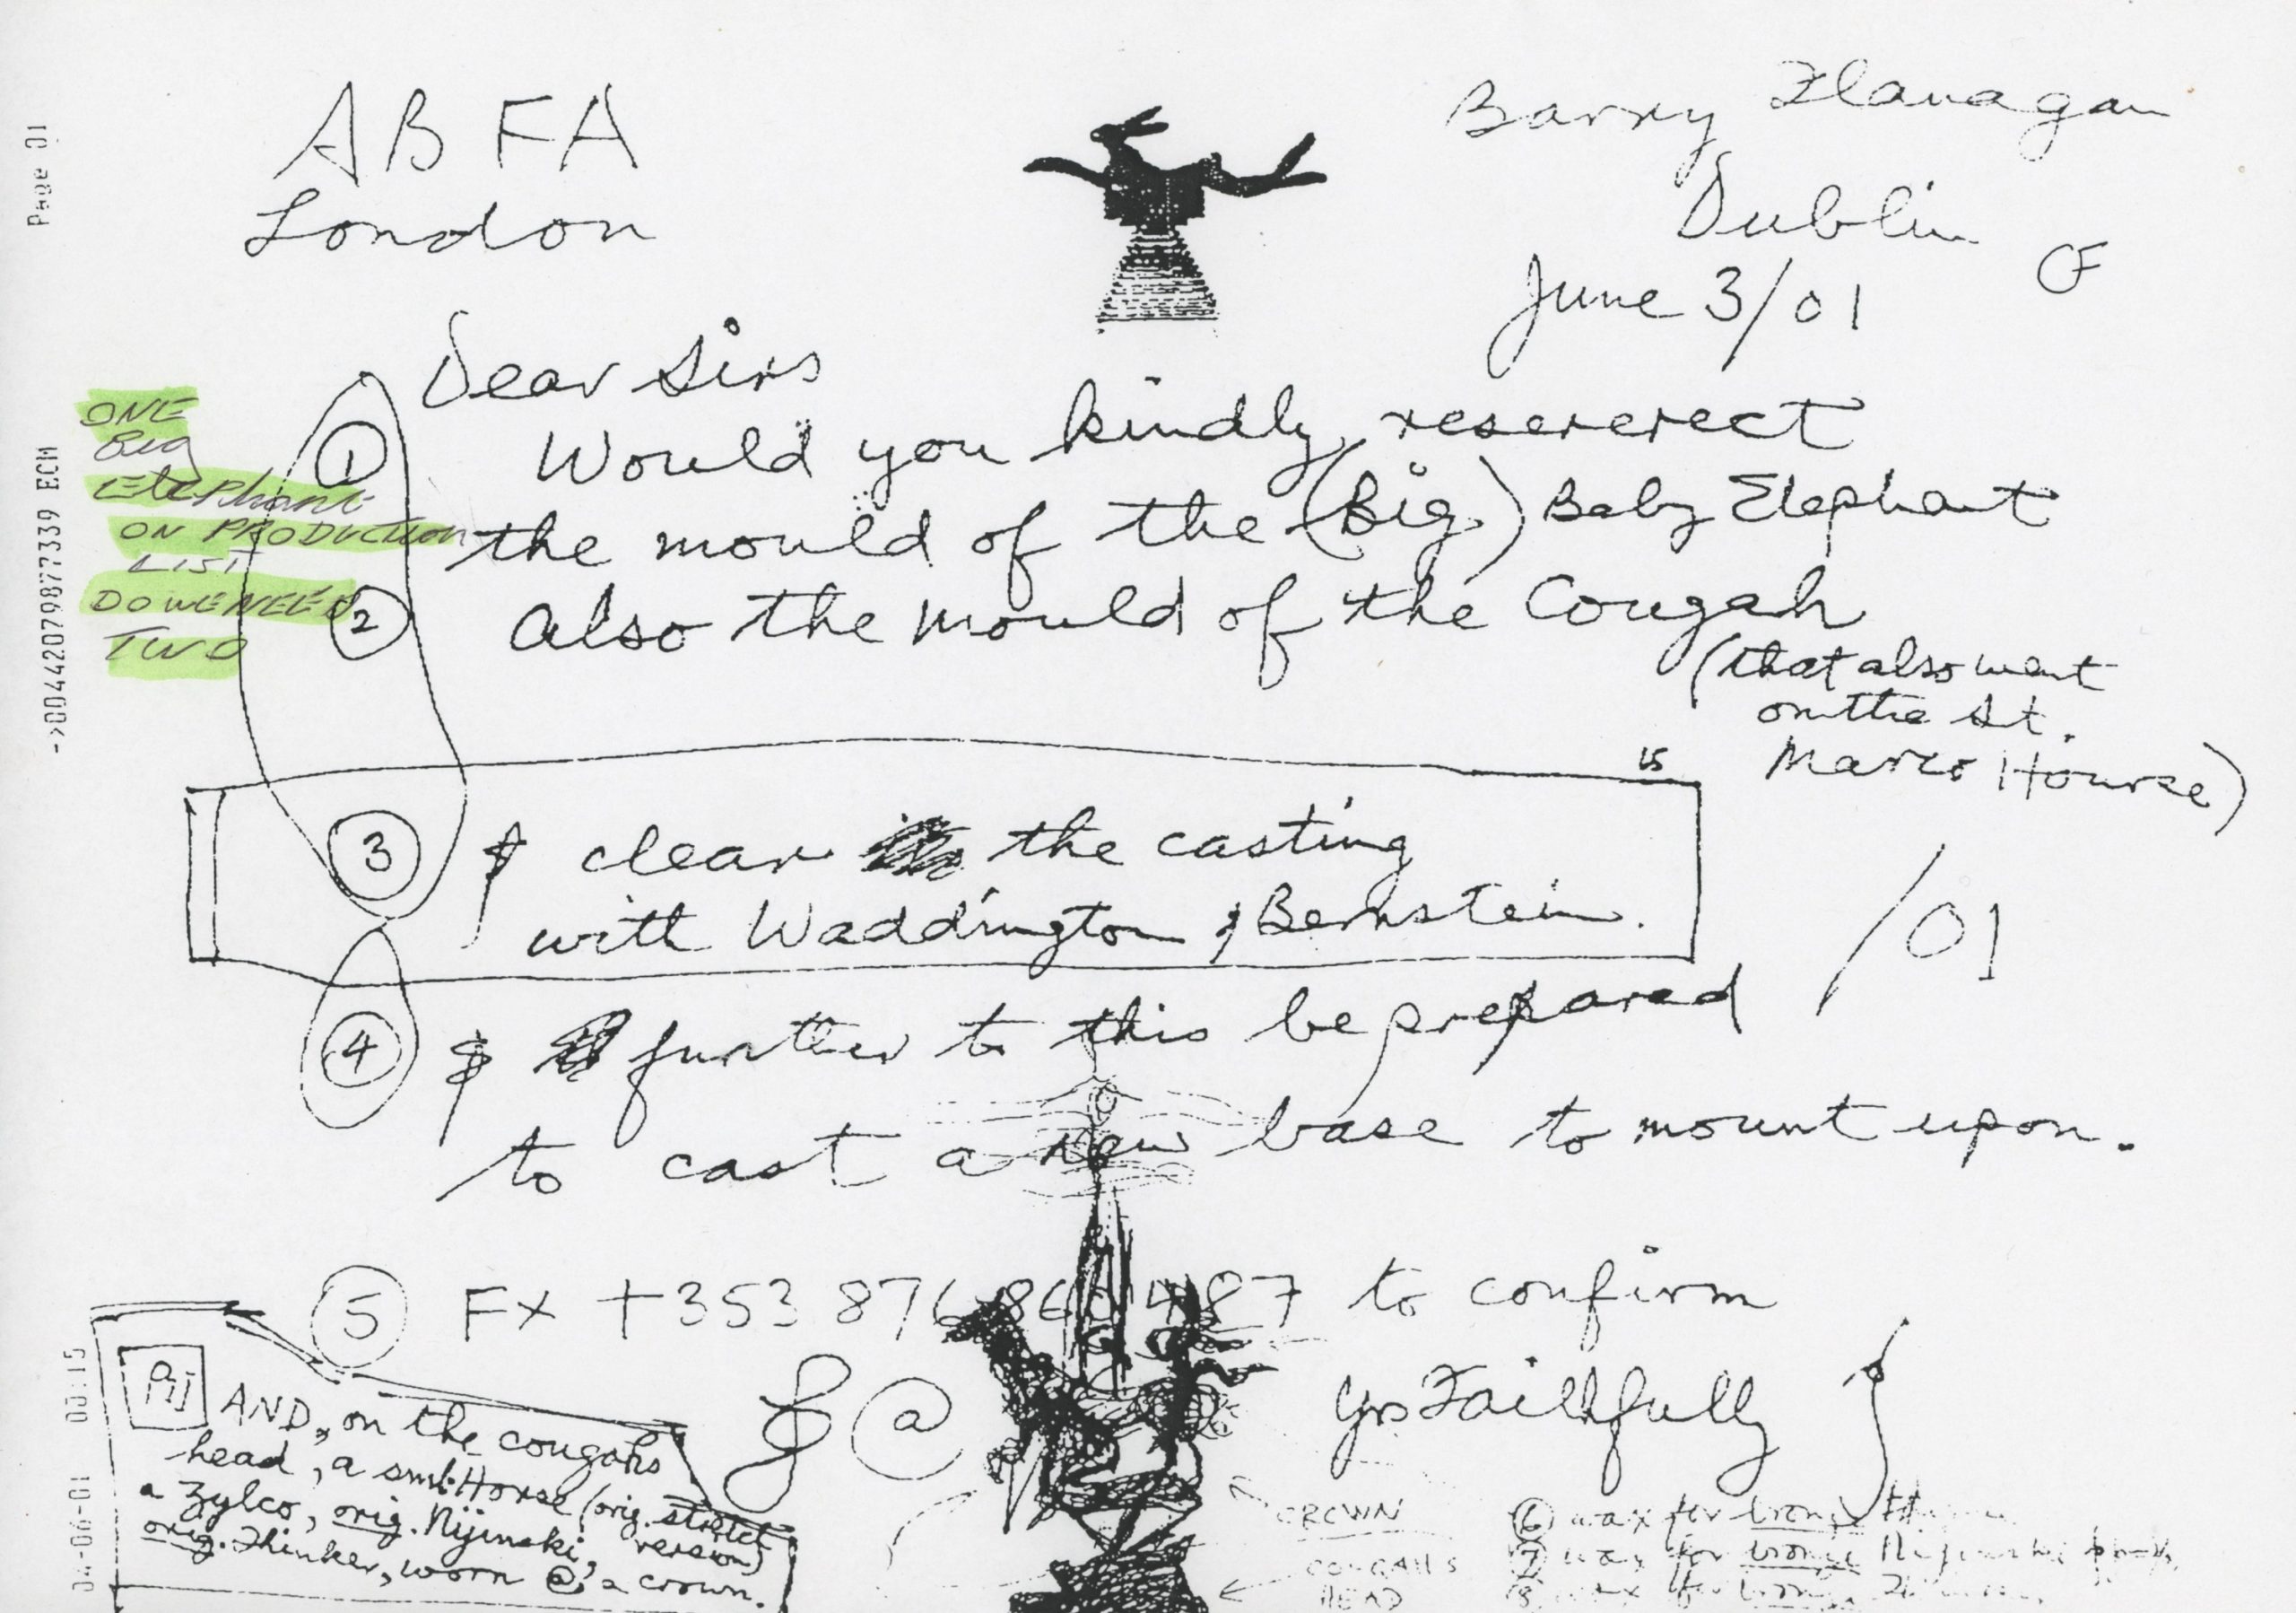 Page 01
->00442079877339 ECM
04-06-01 00:15
ABFA
London
Barry Flanagan
Dublin
June 3/01
Dear Sirs
① Would you kindly resererect
the mould of the (Big) Baby Elephant
② Also the mould of the Cougah
(that also went
on the St.
Marco Hourse)
ONE
Big
Elephant
ON PRODUCTION
LIST
DO WE NEED
TWO
③ & clear the casting
with Waddington & Bernstein.
/01
④ & further to this be prepared
to cast a new base to mount upon.
⑤ Fx +353 876 860 487 to confirm
Yrs Faithfully
AND, on the cougahs
head, a sml. Horse (orig. stretch
version)
a Zylco, orig. Nijinski,
orig. Thinker, worn @ a crown.
CROWN
COUGAHS
HEAD
⑥ wax for bronze
⑦ wax for bronze Nijinski
8 wax for bronze